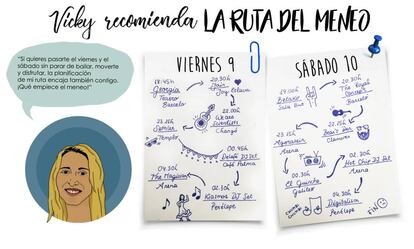 Vicky recomienda LA RUTA DEL MENEO
"Si quieres pasarte el viernes y el
sábado sin parar de bailar, moverte
y disfrutar, la planificación
de mi ruta encaja también contigo.
¡Qué empiece el meneo!"
VIERNES 9
18:45h
Georgia
Teatro
Barceló
20.30h
Joy Eslava
22.00h
We are
Scientists
Changó
23.15h
Templo
Delafé DJ Set
Café Palma
04.30h
The Magician
Arena
Kiasmos DJ Set
Penélope
SÁBADO 10
18.00h
Sala But
20.30h
The Royal
Concept
Barceló
22.10h
23.15h
Arena
02.30h
Hot Chip DJ Set
Arena
El Guincho
Galileo
04.30h
Digitalism
Penélope
FIN